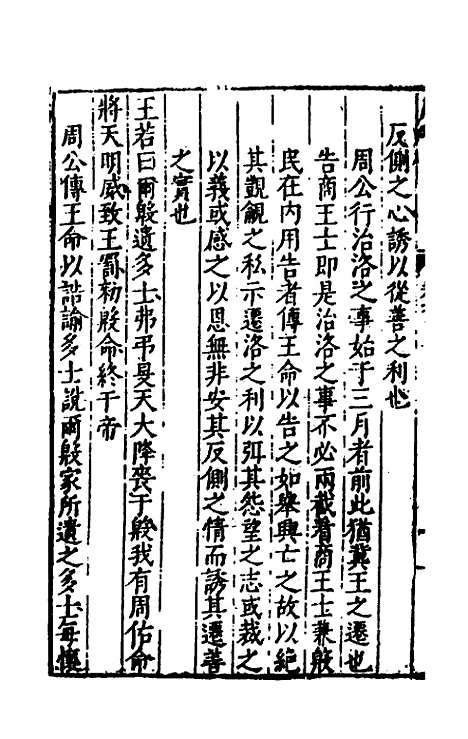 反側之心誘以從善之利也
周公行治洛之事始于三月者前此猶冀王之遷也
告商王士即是治洛之事不必兩截看商王士兼殷
民在內用告者傳王命以告之如舉興亡之故以絕
其覬覦之私示遷洛之利以弭其怨望之志或裁之
以義或感之以恩無非安其反側之情而誘其遷善
之實也
王若曰爾殷遺多士弗弔旻天大降喪于殷我有周佑命
將天明威致王罰勑殷命終于帝
周公傳王命以誥諭多士說爾殷家所遺之多士每懷